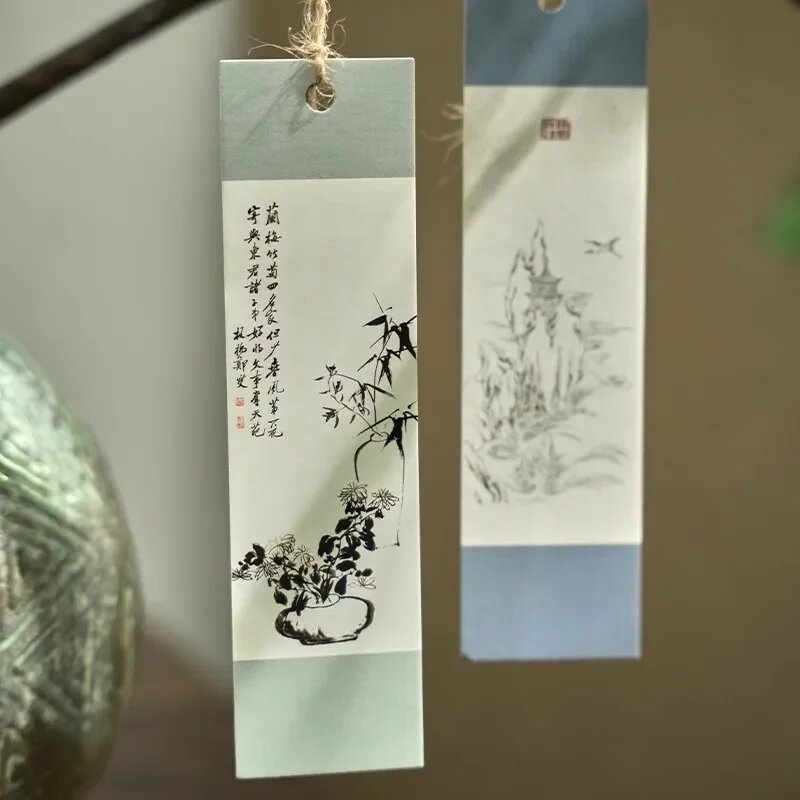 蘭梅竹菊四名家但少春風第一花
寄與東君諸子弟好將文事奪天葩
板橋鄭燮